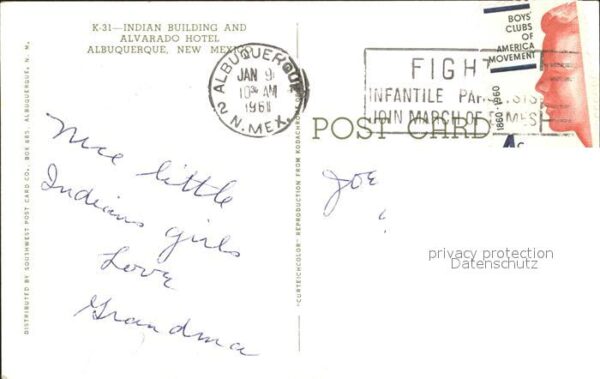 K-31—INDIAN BUILDING AND
ALVARADO HOTEL
ALBUQUERQUE, NEW MEXICO
ALBUQUERQUE
JAN 9
10 AM
1961
2 N. MEX.
FIGHT
INFANTILE PARALYSIS
JOIN MARCH OF DIMES
BOYS'
CLUBS OF
AMERICA
MOVEMENT
1860-1960
4c
POST CARD
Nice little
Indians girls
Love
Grandma
Joe
privacy protection
Datenschutz
DISTRIBUTED BY SOUTHWEST POST CARD CO., BOX 685, ALBUQUERQUE, N. M.
"CURTEICHCOLOR" REPRODUCTION FROM KODACHROME